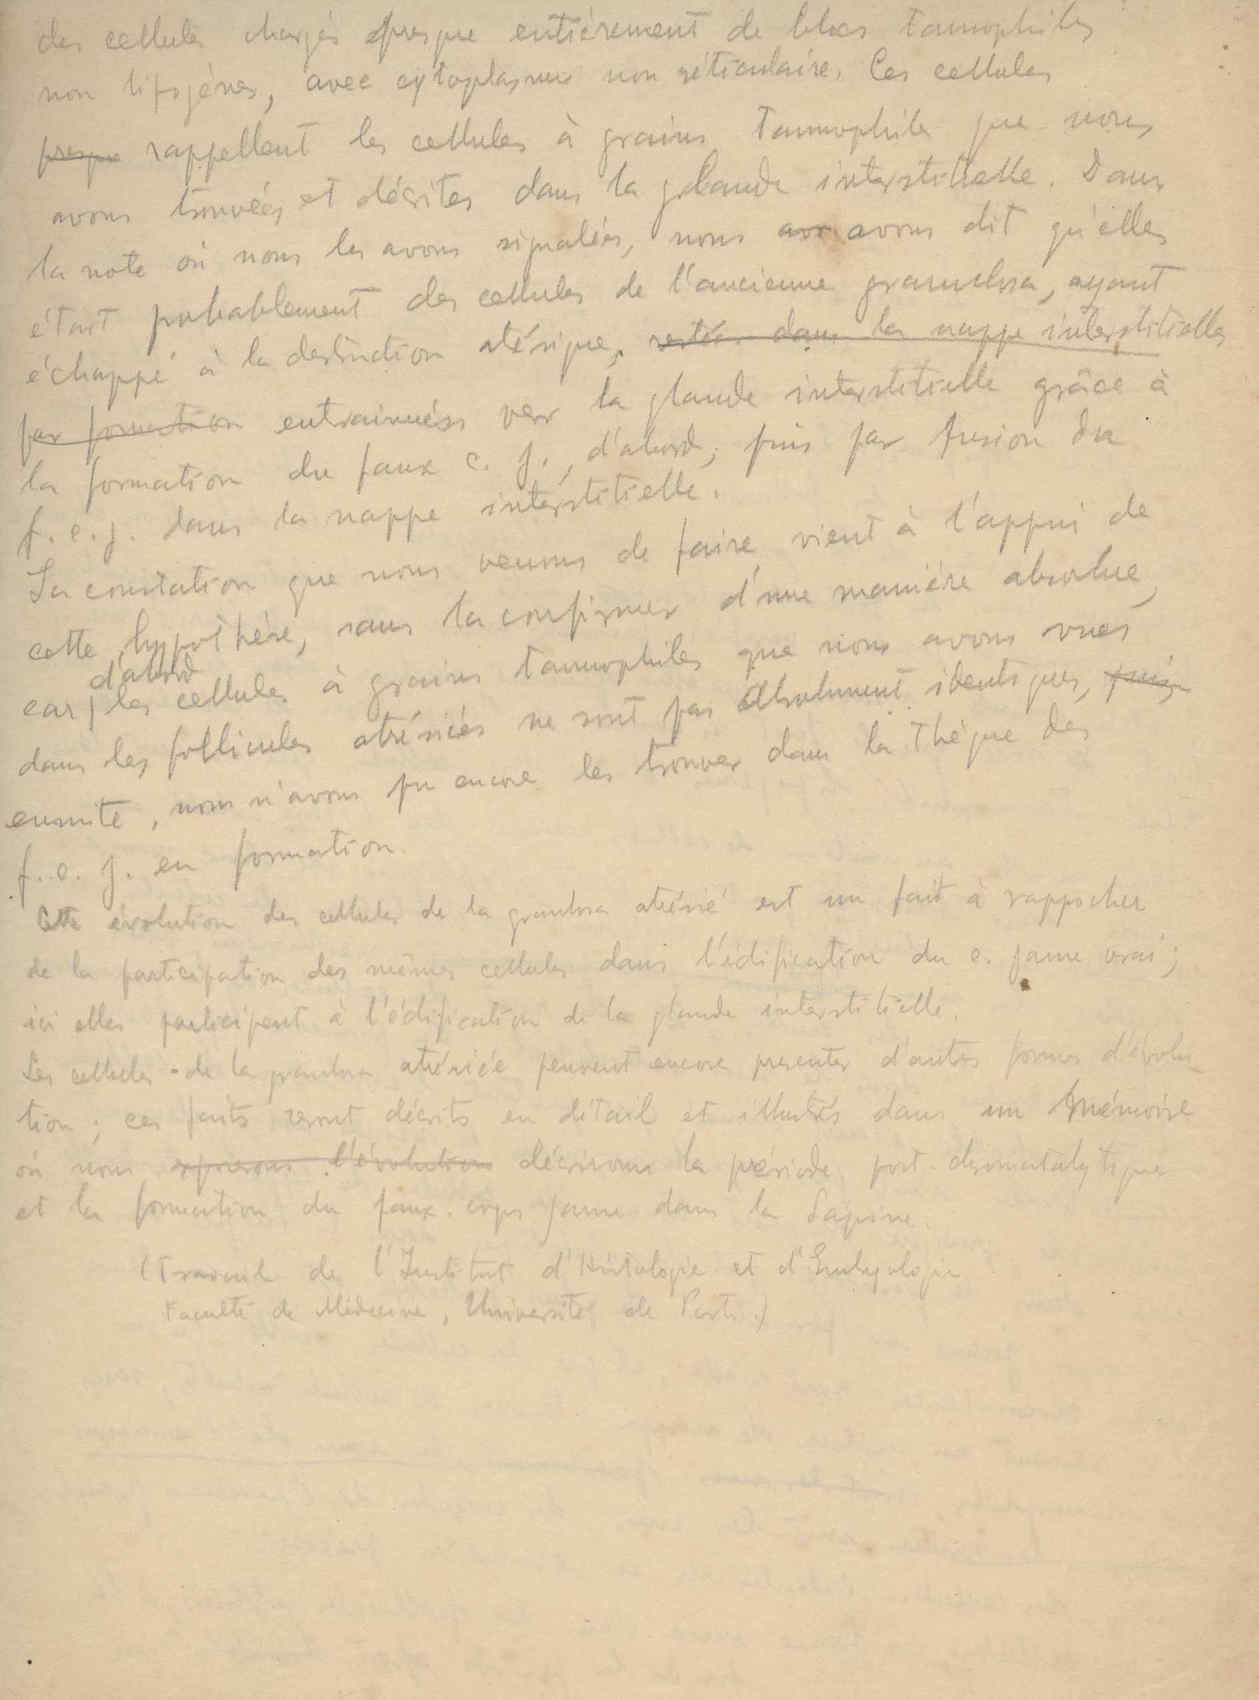 des cellules chargés presque entièrement de blocs tannophiles
non lipogènes, avec cytoplasme non réticulaire. Ces cellules
presque rappellent les cellules à grains tannophiles que nous
avons trouvées et décrites dans la glande interstitielle. Dans
la note où nous les avons signalées, nous avo avons dit qu'elles
était probablement des cellules de l'ancienne granulosa, ayant
échappé à la destruction atrésique, restées dans la nappe interstitielle
par formation entrainées vers la glande interstitielle grâce à
la formation du faux c. j., d'abord, puis par fusion du
f. c. j. dans la nappe interstitielle.
La constation que nous venons de faire, vient à l'appui de
cette hypothèse, sans la confirmer d'une manière absolue,
d'abord
car, les cellules à grains tannophiles que nous avons vues
dans les follicules atrésiés ne sont pas absolument identiques, puis
ensuite, nous n'avons pu encore les trouver dans la thèque des
f. c. j. en formation.
Cette évolution des cellules de la granulosa atrésié est un fait à rapprocher
de la participation des mêmes cellules dans l'édification du c. jaune vrai;
ici elles participent à l'édification de la glande interstitielle.
Les cellules de la granulosa atrésiée peuvent encore presenter d'autres formes d'évolu-
tion; ces faits seront décrits en détail et illustrés dans un Mémoire
où nous l'évolution décrivons la période
et la formation du faux corps jaune dans la Lapine.
(Travail de l'Institut d'Histologie et d'Embryologie
Faculté de Médecine, Université de Porto.)